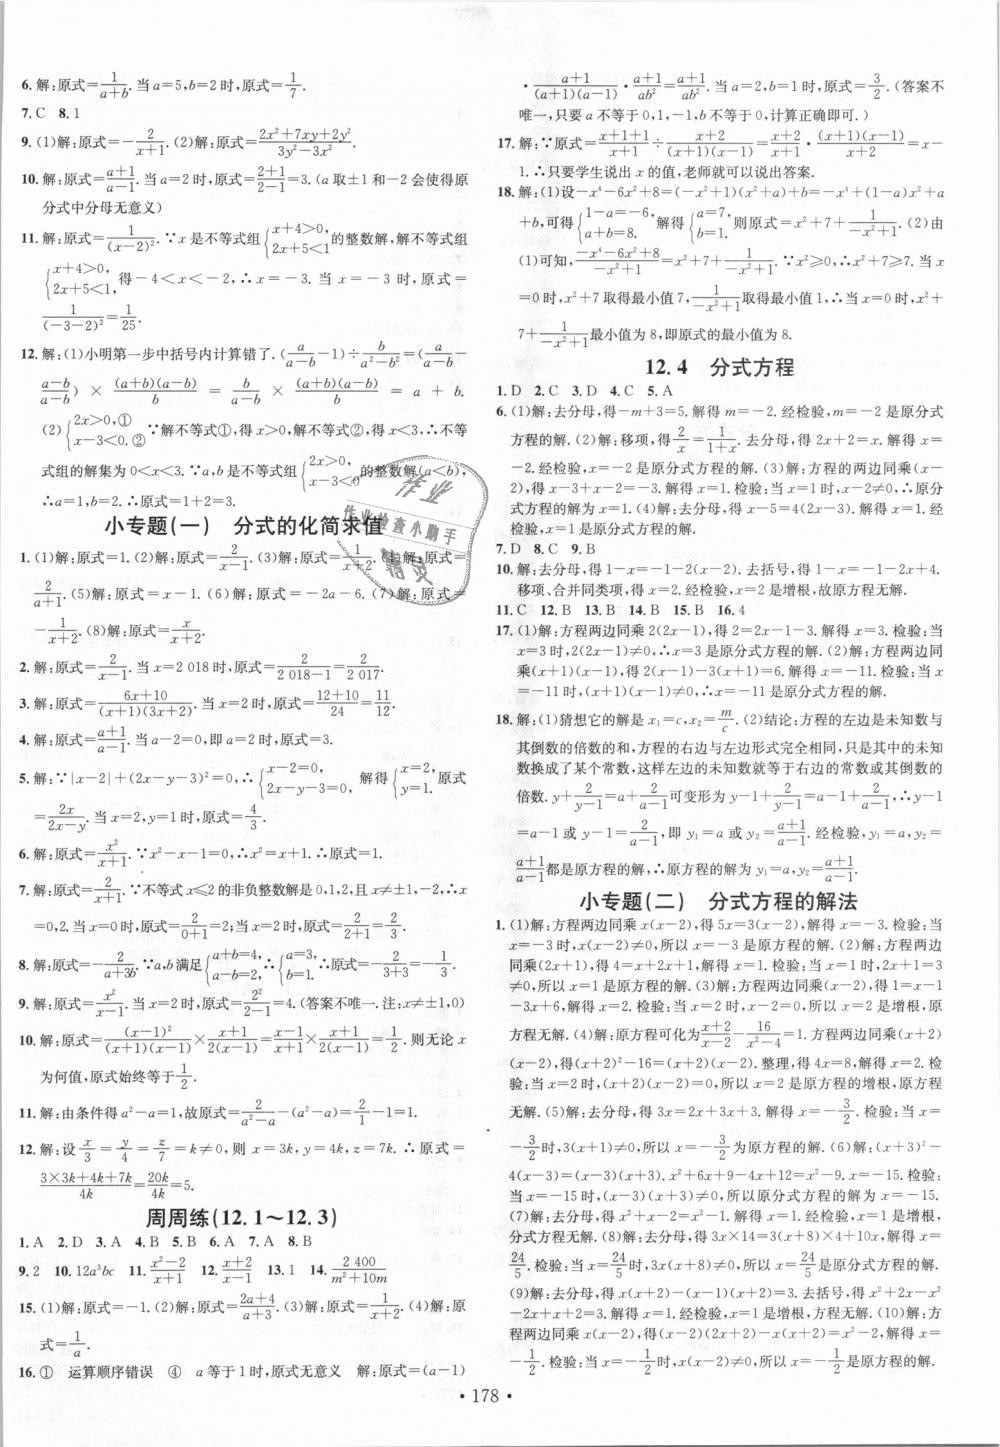 6. 解:原式=1/(a+b). 当 a=5,b=2 时,原式=1/7.
7. C 8. 1
9. (1)解:原式=-2/(x+1). (2)解:原式=(2x²+7xy+2y²)/(3y²-3x²).
10. 解:原式=(a+1)/(a-1). 当 a=2 时,原式=(2+1)/(2-1)=3. (a 取±1 和-2 会使得原
分式中分母无意义)
11. 解:原式=1/(x-2)². ∵x 是不等式组{x+4>0, 2x+5<1 的整数解,解不等式组
{x+4>0, 2x+5<1, 得-4<x<-2,∴x=-3. 当 x=-3 时,原式=
1/(-3-2)²=1/25.
12. 解:(1)小明第一步中括号内计算错了. (a/(a-b)-1)÷b/(a²-b²)=(a/(a-b)-
(a-b)/(a-b))×(a+b)(a-b)/b=b/(a-b)×(a+b)(a-b)/b=a+b.
(2){2x>0,① x-3<0. ② ∵解不等式①,得 x>0,解不等式②,得 x<3,∴不等
式组的解集为 0<x<3. ∵a,b 是不等式组{2x>0, x-3<0 的整数解(a<b),
∴a=1,b=2. ∴原式=1+2=3.
小专题(一) 分式的化简求值
1. (1)解:原式=1. (2)解:原式=2/(x-1). (3)解:原式=1/(x+2). (4)解:原式=
2/(a+1). (5)解:原式=x-1. (6)解:原式=-2a-6. (7)解:原式=
-1/(x+2). (8)解:原式=x/(x+2).
2. 解:原式=2/(x-1). 当 x=2 018 时,原式=2/(2 018-1)=2/2 017.
3. 解:原式=(6x+10)/((x+1)(3x+2)). 当 x=2 时,原式=(12+10)/24=11/12.
4. 解:原式=(a+1)/(a-1). 当 a-2=0,即 a=2 时,原式=3.
5. 解:∵|x-2|+(2x-y-3)²=0,∴{x-2=0, 2x-y-3=0, 解得{x=2, y=1. 原式
=2x/(2x-y). 当 x=2,y=1 时,原式=4/3.
6. 解:原式=x²/(x+1). ∵x²-x-1=0,∴x²=x+1. ∴原式=1.
7. 解:原式=2/(x+1). ∵不等式 x≤2 的非负整数解是 0,1,2,且 x≠±1,-2,∴x
=0,2. 当 x=0 时,原式=2/(0+1)=2;当 x=2 时,原式=2/(2+1)=2/3.
8. 解:原式=-2/(a+3b). ∵a,b 满足{a+b=4, a-b=2, ∴{a=3, b=1. ∴原式=-2/(3+3)=-1/3.
9. 解:原式=x²/(x-1). 当 x=2 时,原式=2²/(2-1)=4. (答案不唯一. 注:x≠±1,0)
10. 解:原式=(x-1)²/((x+1)(x-1))×(x+1)/(2(x-1))=(x-1)/(x+1)×(x+1)/(2(x-1))=1/2. 则无论 x
为何值,原式始终等于1/2.
11. 解:由条件得 a²-a=1,故原式=2/(a²-a)-(a²-a)=2-1=1.
12. 解:设x/3=y/4=z/7=k≠0,则 x=3k,y=4k,z=7k,∴原式=
(3×3k+4k+7k)/4k=20k/4k=5.
周周练(12. 1～12. 3)
1. A 2. D 3. A 4. B 5. B 6. A 7. A 8. B
9. 2 10. 12a³bc 11. (x²-2)/(x+1) 12. (x+2)/(x-1) 13. 1 14. 2 400/(m²+10m)
15. (1)解:原式=-4. (2)解:原式=(2a+4)/(a+3). (3)解:原式=1/(x+2). (4)解:原
式=1/a.
16. ① 运算顺序错误 ④ a 等于 1 时,原式无意义 解:原式=(a-1)
·(a+1)/((a+1)(a-1))·(a+1)/ab²=(a+1)/ab². 当 a=2,b=1 时,原式=3/2. (答案不
唯一,只要 a 不等于 0,1,-1,b 不等于 0,计算正确即可. )
17. 解:∵原式=(x+1+1)/(x+1)÷(x+2)/((x+1)(x-1))=(x+2)/(x+1)·(x+1)(x-1)/(x+2)=x-
1. ∴只要学生说出 x 的值,老师就可以说出答案.
18. 解:(1)设-x⁴-6x²+8=(-x²+1)(x²+a)+b=-x⁴+(1-a)x²+a
+b,可得{1-a=-6, a+b=8. 解得{a=7, b=1. 则原式=x²+7+1/(-x²+1). (2)由
(1)可知,(-x⁴-6x²+8)/(-x²+1)=x²+7+1/(-x²+1). ∵x²≥0,∴x²+7≥7. 当 x
=0 时,x²+7 取得最小值 7,1/(-x²+1)取得最小值 1,∴当 x=0 时,x²+
7+1/(-x²+1)最小值为 8,即原式的最小值为 8.
12. 4 分式方程
1. D 2. C 3. D 4. C 5. A
6. (1)解:去分母,得-m+3=5. 解得 m=-2. 经检验,m=-2 是原分式
方程的解. (2)解:移项,得2/x=1/(1+x). 去分母,得 2x+2=x. 解得 x=
-2. 经检验,x=-2 是原分式方程的解. (3)解:方程的两边同乘(x-2),
得 x-3+x-2=-3. 解得 x=1. 检验:当 x=1 时,x-2≠0,∴原分
式方程的解为 x=1. (4)解:去分母,得 x-5=4(2x-3). 解得 x=1. 经检
验,x=1 是原分式方程的解.
7. D 8. C 9. B
10. 解:去分母,得 1-x=-1-2(x-2). 去括号,得 1-x=-1-2x+4.
移项、合并同类项,得 x=2. 经检验,x=2 是增根,故原方程无解.
11. C 12. B 13. B 14. B 15. B 16. 4
17. (1)解:方程两边同乘 2(2x-1),得 2=2x-1-3. 解得 x=3. 检验:当
x=3 时,2(2x-1)≠0,∴x=3 是原分式方程的解. (2)解:方程两边同
乘(x+1)(x-1),得 2(x-1)-3(x+1)=6. 解得 x=-11. 检验:当 x
=-11 时,(x+1)(x-1)≠0,∴x=-11 是原分式方程的解.
18. 解:(1)猜想它的解是 x₁=c,x₂=m/c. (2)结论:方程的左边是未知数与
其倒数的倍数的和,方程的右边与左边形式完全相同,只是其中的未知
数换成了某个常数,这样左边的未知数就等于右边的常数或其倒数的
倍数. y+2/(y-1)=a+2/(a-1)可变形为 y-1+2/(y-1)=a-1+2/(a-1),∴y-1
=a-1 或 y-1=2/(a-1),即 y₁=a 或 y₂=(a+1)/(a-1). 经检验,y₁=a,y₂=
(a+1)/(a-1)都是原方程的解,∴原方程的解为 y₁=a,y₂=(a+1)/(a-1).
小专题(二) 分式方程的解法
1. (1)解:方程两边同乘 x(x-2),得 5x=3(x-2). 解得 x=-3. 检验:当
x=-3 时,x(x-2)≠0,所以 x=-3 是原方程的解. (2)解:方程两边
同乘(2x+1),得 4=x+2x+1,解得 x=1. 检验:当 x=1 时,2x+1=3
≠0,所以 x=1 是原方程的解. (3)解:方程两边同乘(x-2),得 1=x-1
-3x+6,解得 x=2. 检验:当 x=2 时,x-2=0,所以 x=2 是增根,原
方程无解. (4)解:原方程可化为(x+2)/(x-2)-16/(x²-4)=1. 方程两边同乘(x+2)
(x-2),得(x+2)²-16=(x+2)(x-2). 整理,得 4x=8,解得 x=2. 检
验:当 x=2 时,(x+2)(x-2)=0,所以 x=2 是原方程的增根,原方程
无解. (5)解:去分母,得 3x=2x+3x+3. 解得 x=-3/2. 检验:当 x=
-3/2时,3(x+1)≠0,所以 x=-3/2为原方程的解. (6)解:(x+3)²-
4(x-3)=(x-3)(x+3). x²+6x+9-4x+12=x²-9. x=-15. 检验:
当 x=-15 时,(x-3)(x+3)≠0,所以原分式方程的解为 x=-15.
(7)解:去分母,得 x²+x-x²+1=2. 解得 x=1. 经检验,x=1 是增根,
分式方程无解. (8)解:去分母,得 3(3x+8)+4x=4x+10x,解得 x=
24/5. 检验:当 x=24/5时,3x(3x+8)≠0,所以原分式方程的解为 x=24/5.
(9)解:去分母,得 x(x+2)-(x-1)(x+2)=3. 去括号,得 x²+2x-x²
-2x+x+2=3. 解得 x=1. 经检验,x=1 是增根,原方程无解. (10)解:方程
两边同乘 x(x-2),得 2(x-2)+x(x-2)=x²-2x+2x=4. 解得 x=
178
作业
作业检查小助手
精灵